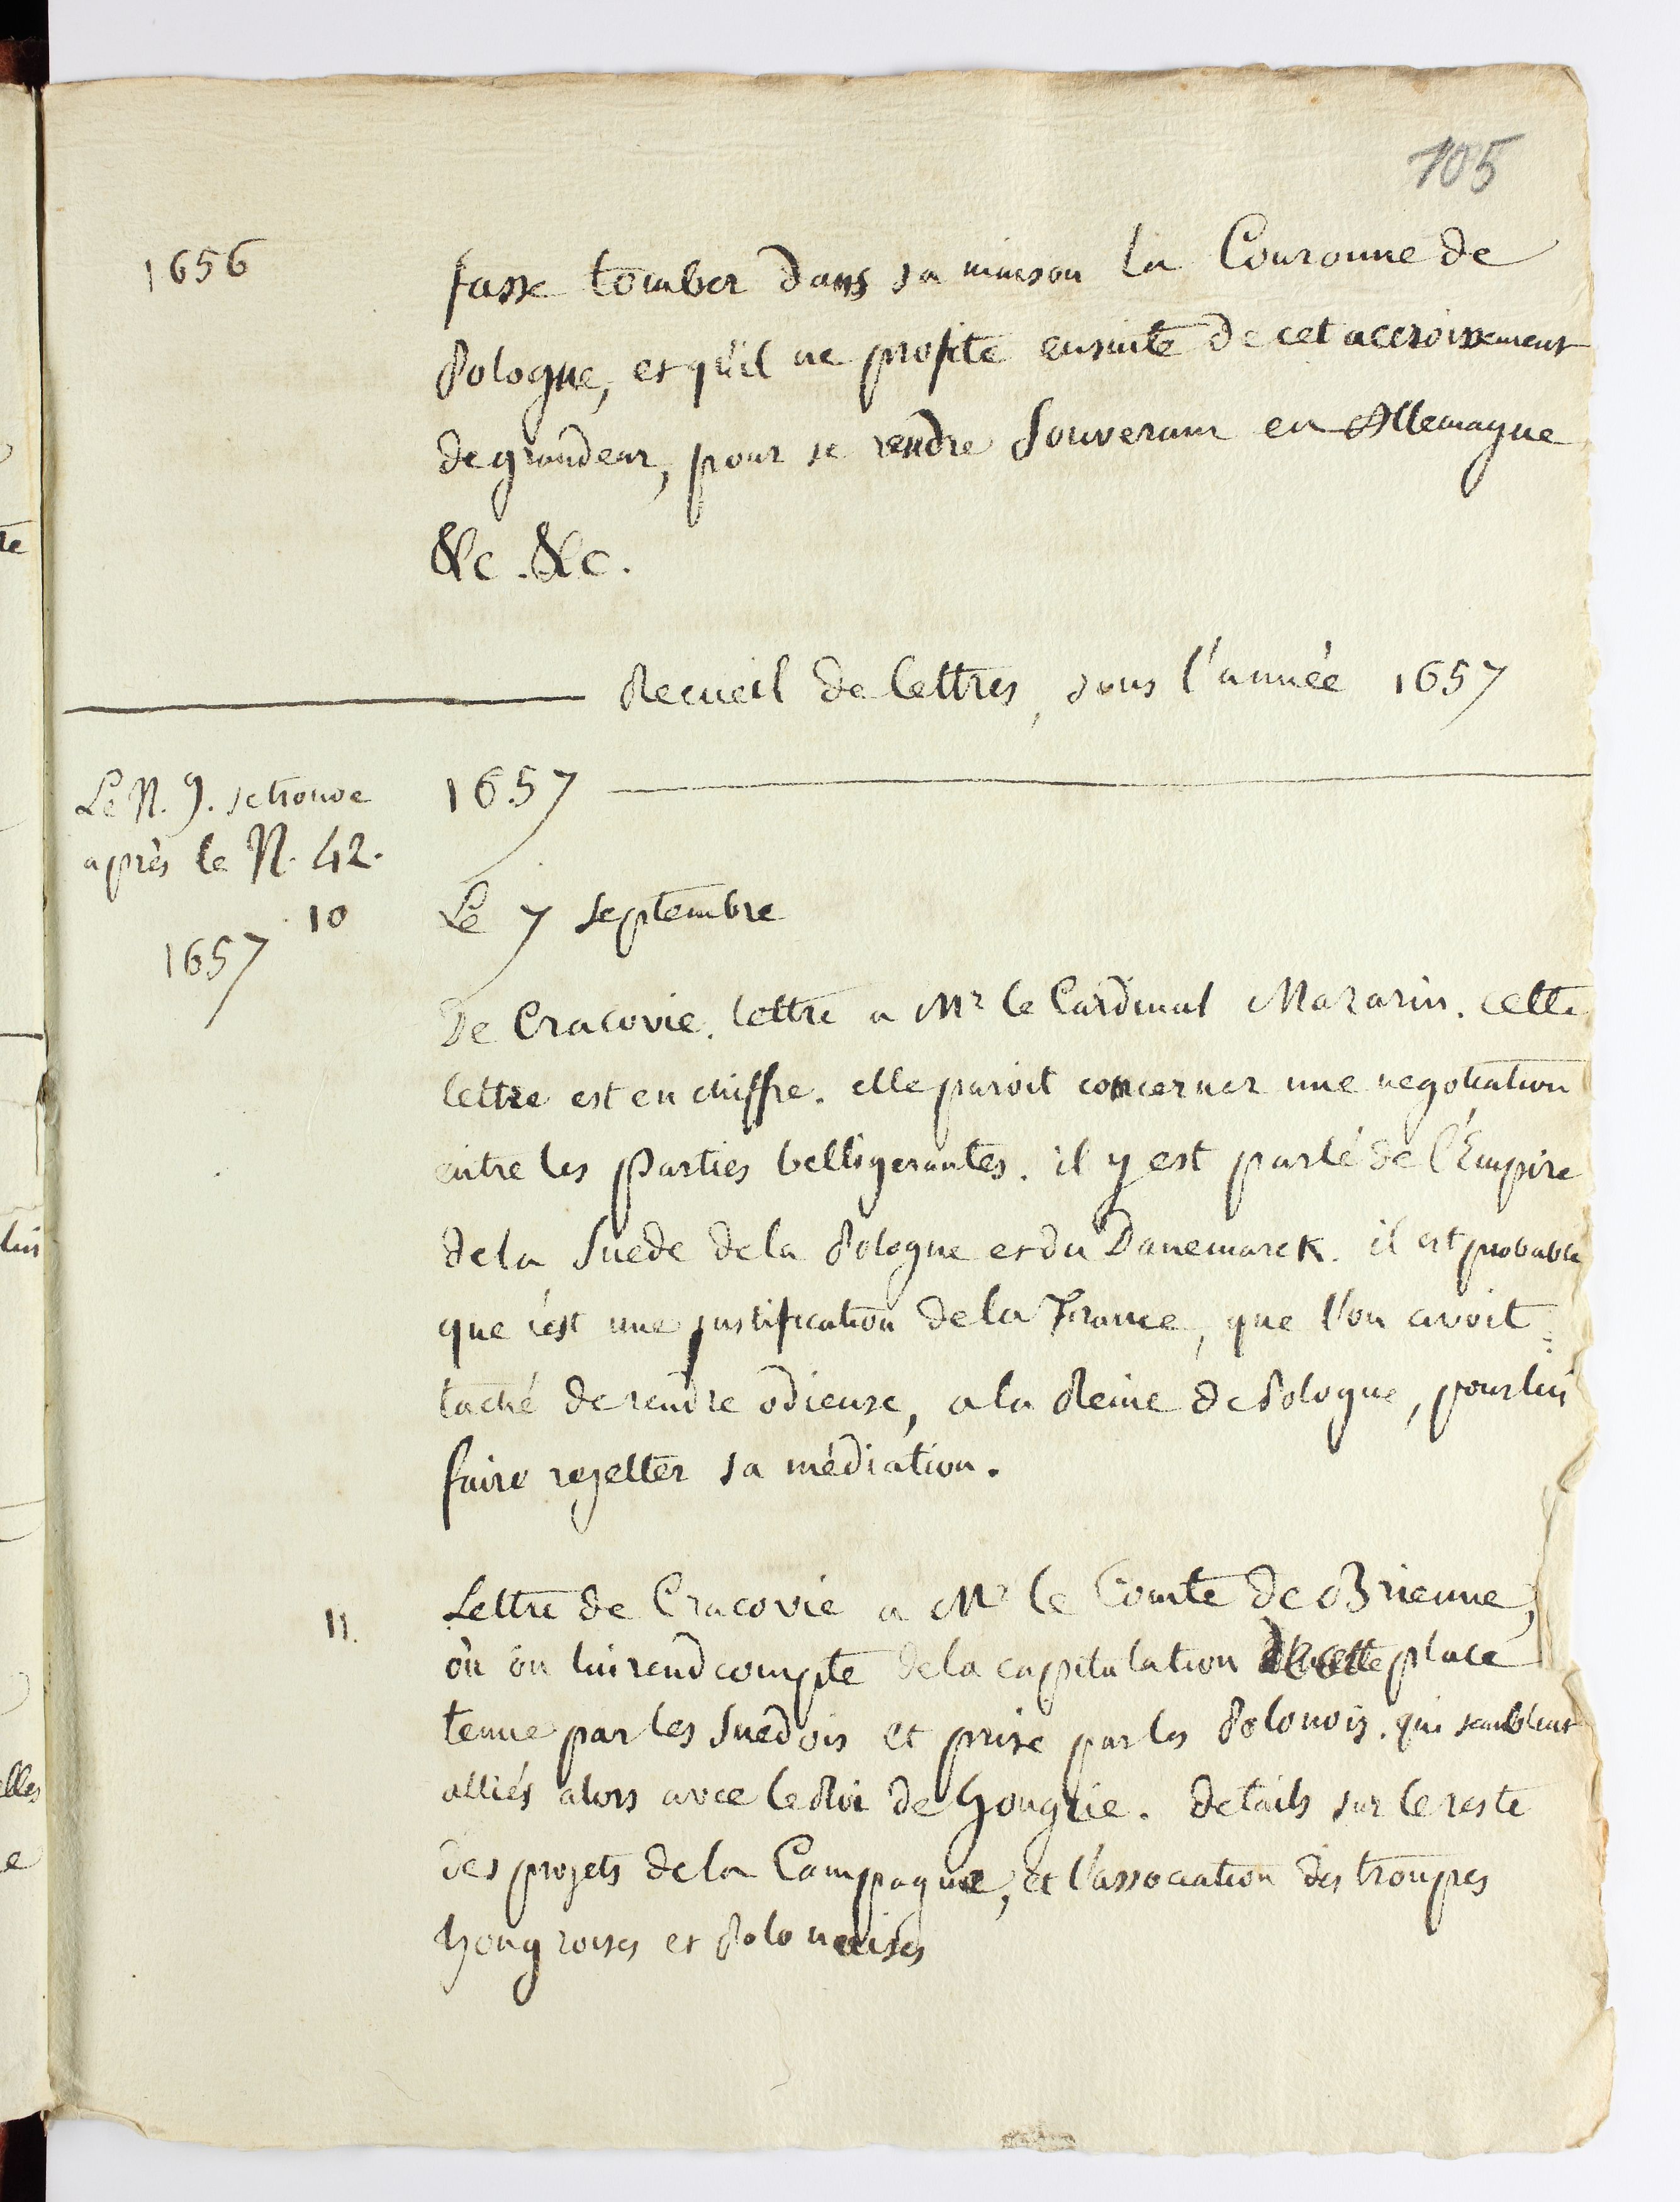 105
1656
fasse tomber dans sa maison la Couronne de
Pologne, et qu'il ne profite ensuite de cet accroissement
de grandeur, pour se rendre Souverain en Allemagne
&c. &c.
Recueil de lettres, sous l'année 1657
Le N. 9. se trouve
après le N. 42.
1657
10
1657
Le 7 septembre
De Cracovie. lettre a Mr le Cardinal Mazarin. cette
lettre est en chiffre. elle paroit concerner une negotiation
entre les Parties belligerantes. il y est parlé de l'Empire
de la Suede de la Pologne et du Danemarck. il est probable
que c'est une justification de la France, que l'on avoit
taché de rendre odieuse, a la Reine de Pologne, pour lui
faire rejetter sa médiation.
11.
Lettre de Cracovie a Mr le Comte de Brienne,
où on lui rend compte de la capitulation de cette place
tenue par les Suedois et prise par les Polonois. qui semblent
alliés alors avec le Roi de hongrie. details sur le reste
des projets de la Campagne, et l'association des troupes
hongroises et Polonaises